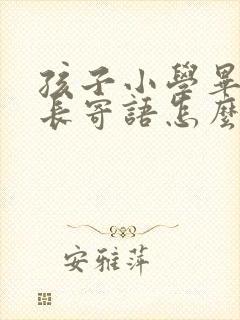 孩子小學畢
長寄語怎麼
安雅萍